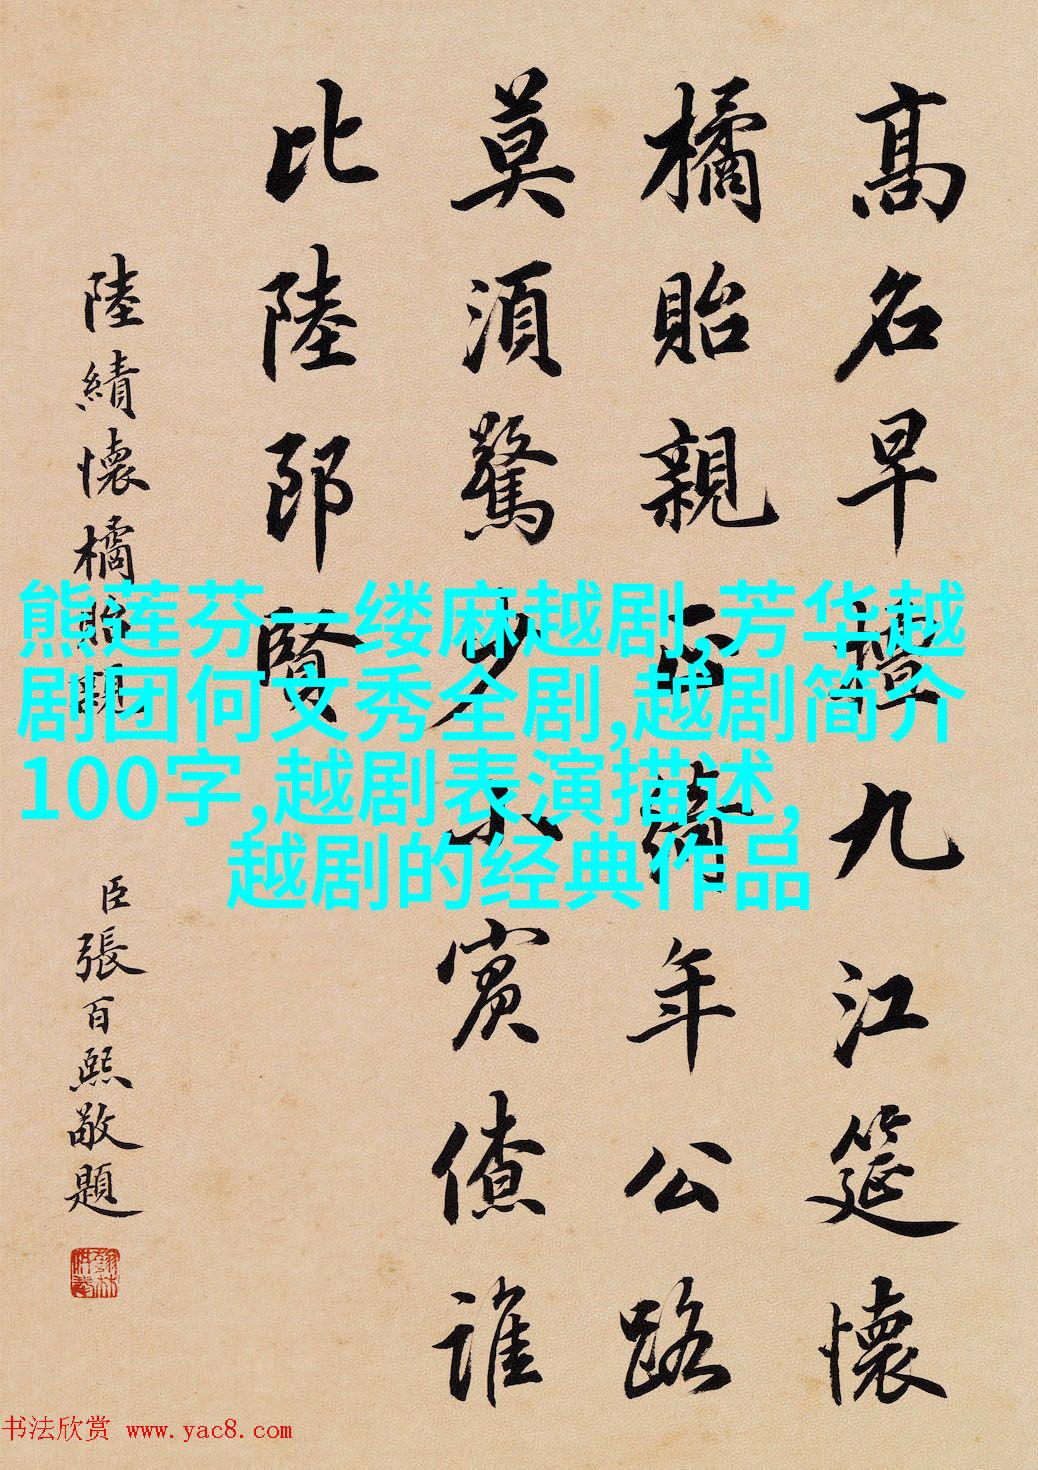 高名早擅九江筵懷
橘貽親正綺年公路
莫須驚少小賓僚誰
比陸郎賢
陸績懷橘貽親
臣張百熙敬題
熊莲芬一缕麻越剧,芳华越
剧团何文秀全剧,越剧简介
100字,越剧表演描述,
越剧的经典作品
书法欣赏 www.yac8.com